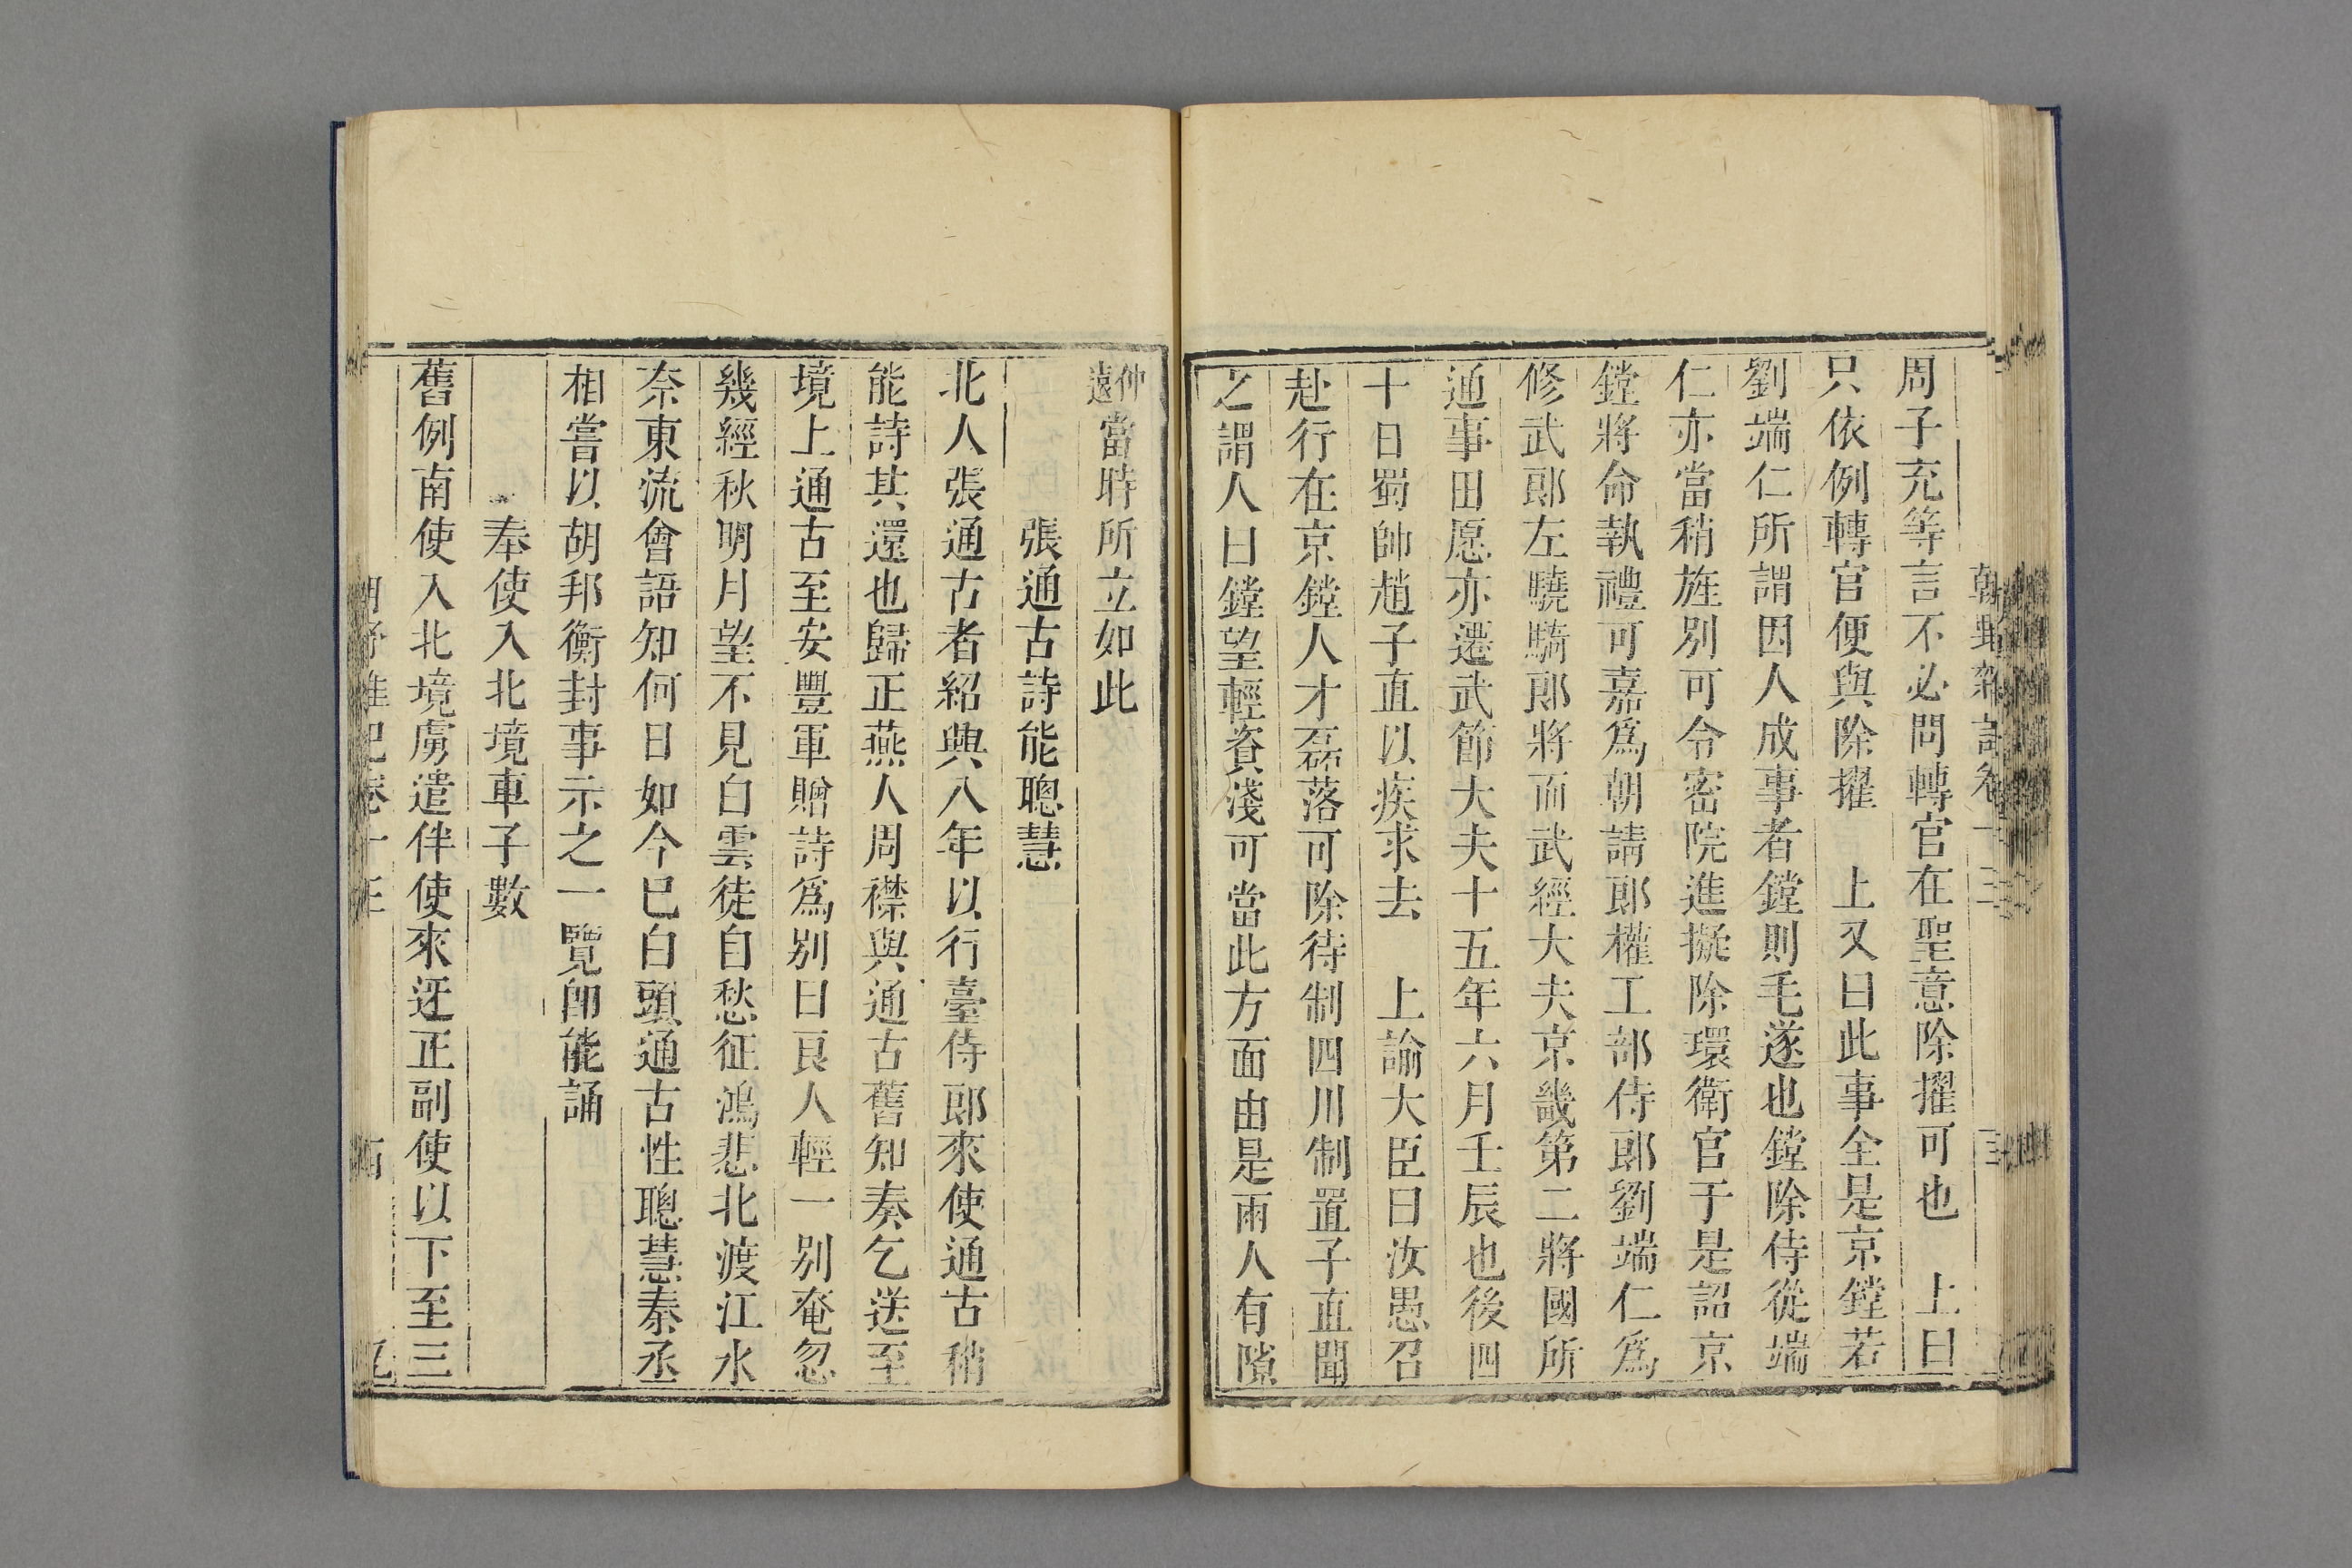 周子充等言不必問轉官在聖意除擢可也　上曰
只依例轉官便與除擢　上又曰此事全是京鏜若
劉端仁所謂因人成事者鏜則毛遂也鏜除侍從端
仁亦當稍旌別可令密院進擬除環衛官于是詔京
鏜將命執禮可嘉爲朝請郎權工部侍郎劉端仁爲
修武郎左驍騎郎將而武經大夫京畿第二將國所
通事田愿亦遷武節大夫十五年六月壬辰也後四
十日蜀帥趙子直以疾求去　上諭大臣曰汝愚召
赴行在京鏜人才磊落可除待制四川制置子直聞
之謂人曰鏜望輕資淺可當此方面由是兩人有隙
仲遠當時所立如此
張通古詩能聰慧
北人張通古者紹興八年以行臺侍郎來使通古稍
能詩其還也歸正燕人周襟與通古舊知奏乞送至
境上通古至安豐軍贈詩爲别曰良人輕一别奄忽
幾經秋明月望不見白雲徒自愁征鴻悲北渡江水
奈東流會語知何日如今已白頭通古性聰慧秦丞
相嘗以胡邦衡封事示之一覽卽能誦
奉使入北境車子數
舊例南使入北境虜遣伴使來迓正副使以下至三